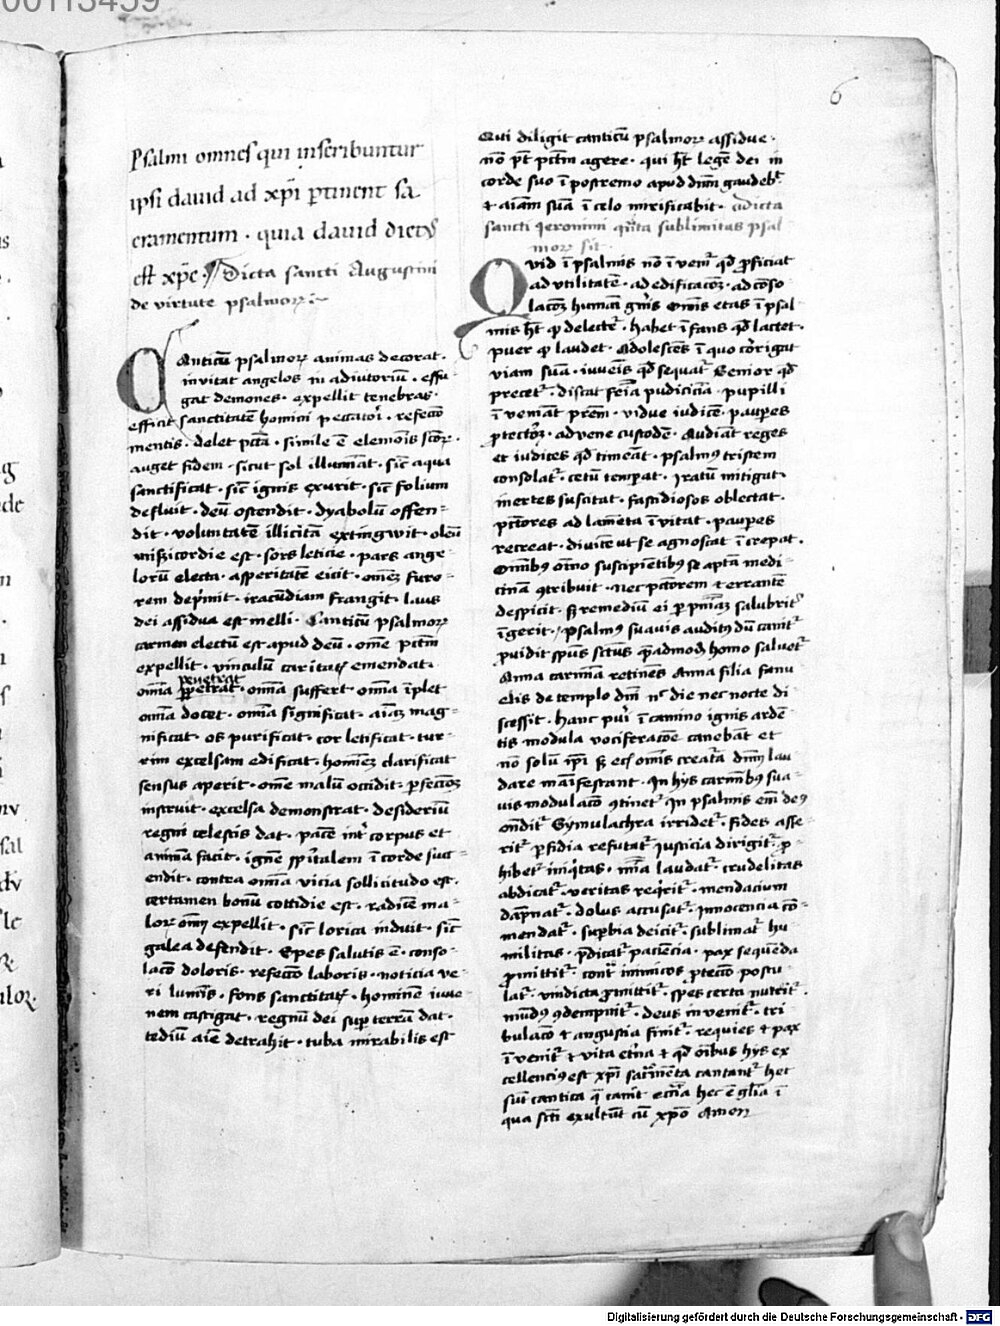 00113459
6
Psalmi omnes qui inscribuntur
ipsi dauid ad xp̄i ꝑtinent sa
cramentum · quia dauid dictꝰ
est xp̄c · ¶ Dicta sancti Augustini
de virtute psalmoꝝ :~
Canticū psalmoꝝ animas decorat ·
inuitat angelos in adiutoriū · effu
gat demones · expellit tenebras ·
efficit sanctitatē homini peccatori · refeccō
mentis · delet pctā · simile ē elemoīs scōꝝ ·
auget fidem · sicut sol illumīat · sic̄ aqua
sanctificat · sic̄ ignis exurit · sic̄ folium
defluit · deū ostendit · dyabolū offen-
dit · voluntatē illicitā extingwit · oleū
misericordie est · sors leticie · pars ange-
lorū electa · asperitatē eicit · omēꝫ furo-
rem dep̄mit · iracūdiam frangit · laus
dei assidua est melli · Canticū psalmoꝝ
carmen electū est apud deū · om̄e pctm̄
expellit · vinculū caritatꝭ emendat ·
penetrat
om̄ia ꝑpetrat · om̄ia suffert · om̄ia īplet
om̄ia docet · om̄ia significat · aīaꝫ mag-
nificat · os purificat · cor letificat · tur-
rim excelsam edificat · homēꝫ clarificat
sensus aperit · om̄e malū occidit · ꝑfeccōꝫ
instruit · excelsa demonstrat · desideriū
regni celestis dat · pacē int̄ corpus et
animā facit · ignē sp̄italem ī corde succ-
endit · contra om̄ia vicia sollicitudo est ·
certamen bonū cottidie est · radicē ma-
loꝝ om̄ꝫ expellit · sic̄ lorica induit · sic̄
galea defendit · Spes salutis ē · conso-
lacō doloris · refeccō laboris · noticia ve-
ri lumīs · fons sanctitatꝭ · hominē iuue-
nem castigat · regnū dei suꝑ terrā dat ·
tediū aīe detrahit · tuba mirabilis est
Qui diligit canticū psalmoꝝ assidue ·
nō pt̄ pctm̄ agere · qui ht̄ legē dei in
corde suo ī postremo apud dn̄m gaudebit
⁊ aīam suā ī celo mirificabit · Dicta
sancti Jeronimi quāta sublimitas psal
moꝝ sit ·
Quid ī psalmis nō īvenit̄ qd̄ ꝓficiat
ad vtilitatē · ad edificacōꝫ · ad cōso
lacōꝫ humani gn̄is Om̄is etas ī psal
mis ht̄ qd̄ delectet̄ · habet īfans qd̄ lactet ·
puer qd̄ laudet · Adolescēs ī quo corrigat
viam suā · iuuenis qd̄ sequat̄ Senior qd̄
precet̄ · discat feīa pudiciciā · pupilli
īveniāt prēm · vidue iudicē · pauꝑes
ꝓtectōꝫ · advene custodē · Audiāt reges
et iudices qd̄ timeāt · psalmꝰ tristem
consolat̄ · cetū temꝑat · Jratū mitigat ·
inertes suscitat · fastidiosos oblectat ·
pctōres ad lamēta īvitat · pauꝑes
recreat · diuitē ut se agnoscat īcrepat ·
Om̄ibꝰ om̄ino suscipientibꝰ se aptā medi-
cinā ꝯtribuit · nec pctōrem ⁊ errantē
despicit · sꝫ remediū ei ꝑ pn̄iaꝫ salubrit̄
īgerit · psalmꝰ suauis auditꝰ dū canit̄
ꝓuidit sp̄us sc̄tus quēadmodū homo saluet̄
Anna carmīa retinēs Anna filia fanu
elis de templo dn̄i nec die nec nocte di-
scessit · hanc pueri ī camino ignis ardē-
tis modula vociferacōe canebāt et
nō solū ip̄i sꝫ ec̄ om̄is creatā dn̄m lau
dare maīfestant · Jn hys carmībꝰ sua-
uis modulacō ꝯtinet̄ Jn psalmis em̄ deꝰ
ondit̄ Symulachra irridet̄ · fides asse-
rit̄ ꝑfidia refutat̄ Justicia dirigit̄ ꝓ-
hibet̄ iniq̄tas · mīa laudat̄ · crudelitas
abdicat̄ · veritas req̄rit̄ · mendacium
dāpnat̄ · dolus accusat̄ · Jnnocencia cō-
mendat̄ · suꝑbia deicit̄ · sublimat̄ hu
militas · p̄dicat̄ paciēcia · pax sequēda
ꝓmittit̄ · cont̄ inimicos ꝓtecō postu-
lat̄ · vindicta ꝓmittit̄ · spes certa nutrit̄ ·
mūdꝰ ꝯdempnit̄ · deus īvenit̄ · tri
bulacō ⁊ angustia finit̄ · requies ⁊ pax
īvenit̄ ⁊ vita et̄na ⁊ qd̄ om̄ibus hys ex
cellenciꝰ est xp̄i sacramēta cantant̄ hec
sūt cantica q̄ canit ecc̄ia hec ē gl̄ia ī
qua sc̄ti exultāt cū xp̄o Amen
Digitalisierung gefördert durch die Deutsche Forschungsgemeinschaft - DFG